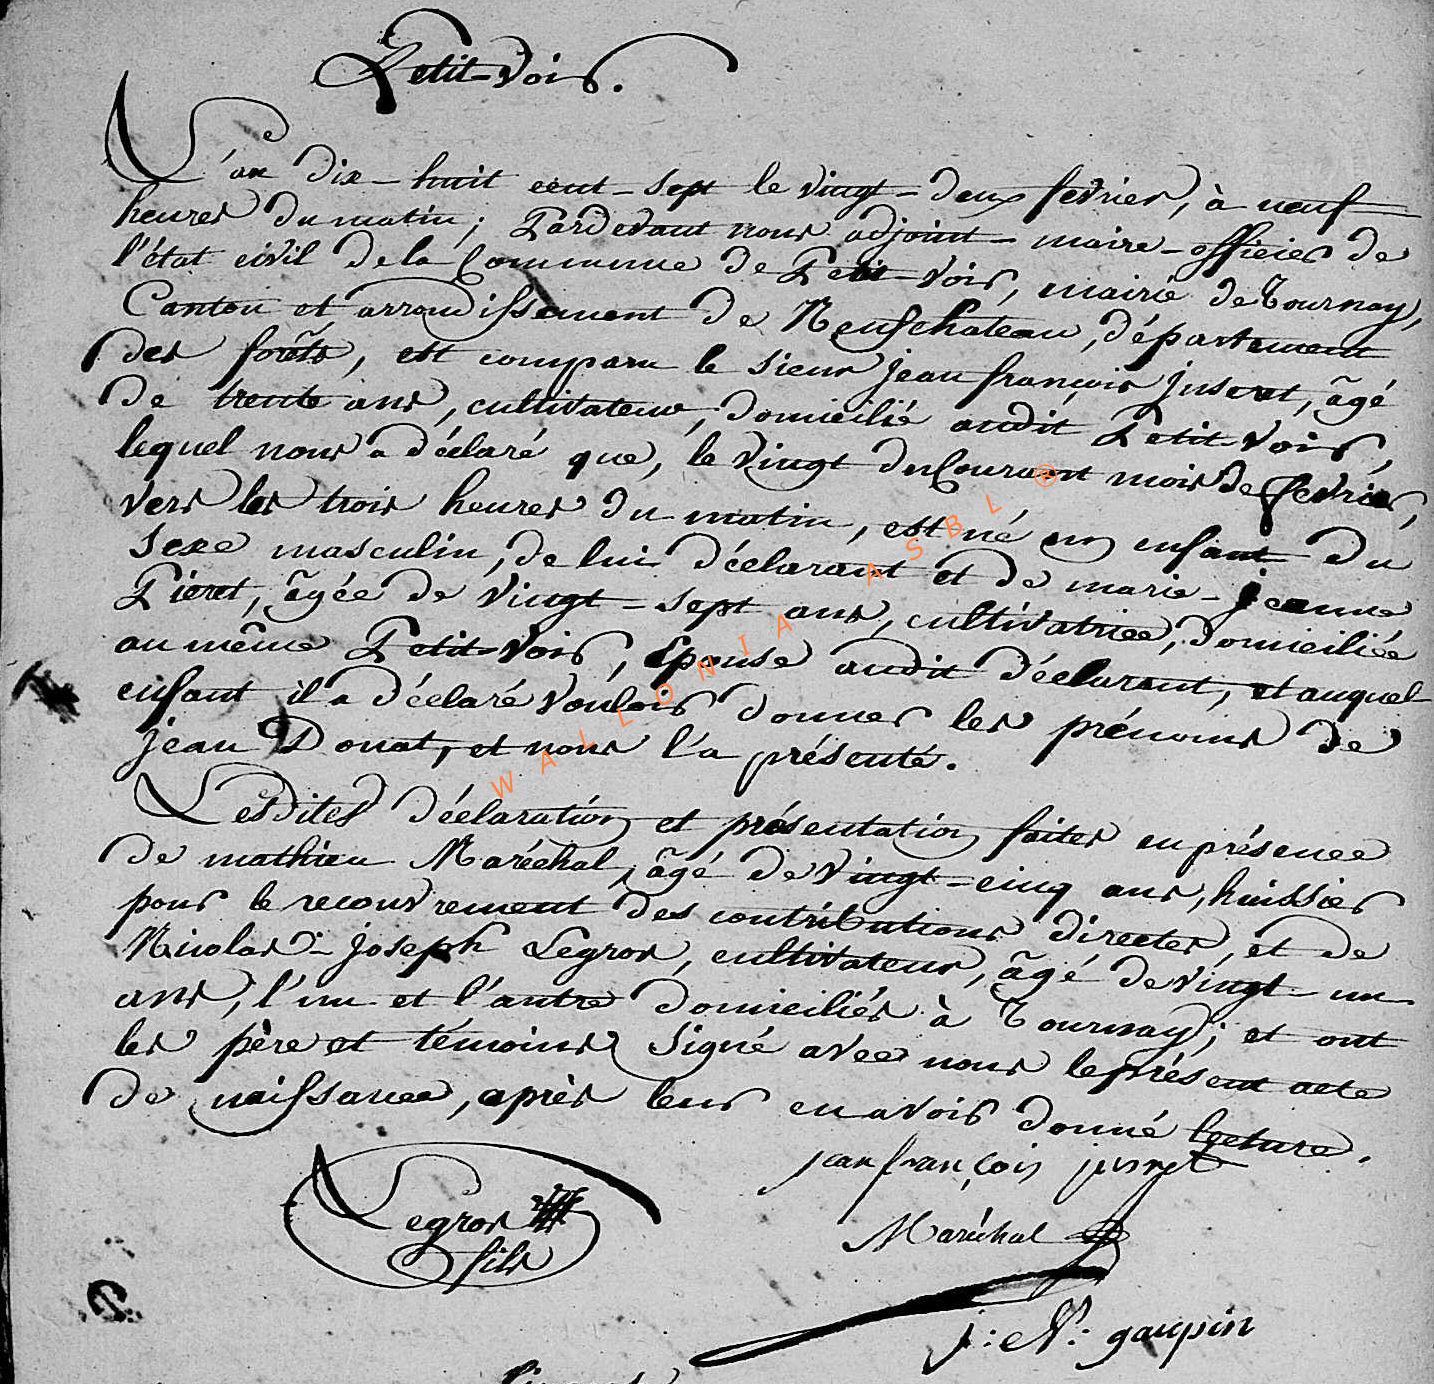 Petit-Voir.
L'an dix-huit cent-sept le vingt-deux fevrier, à neuf
heures du matin; Pardevant nous adjoint-maire-officier de
l'état civil de la Commune de Petit-Voir, mairie de Tournay,
Canton et arrondissement de Neufchateau, département
des forêts, est comparu le sieur jean françois juseret, âgé
de trente ans, cultivateur, domicilié audit Petit-Voir,
lequel nous a déclaré que, le vingt du Courant mois de fevrier,
vers les trois heures du matin, est né un enfant du
sexe masculin, de lui déclarant et de marie-jeanne
Pieret, âgée de vingt-sept ans, cultivatrice, domiciliée
au même Petit-Voir, épouse audit déclarant, et auquel
enfant il a déclaré vouloir donner les prénoms de
jean Donat, et nous l'a présenté.
Lesdites déclaration et présentation faites en présence
de mathieu Maréchal, âgé de vingt-cinq ans, huissier
pour le recouvrement des contributions directes, et de
Nicolas-joseph Legros, cultivateur, âgé de vingt-un
ans, l'un et l'autre domiciliés à Tournay; et ont
les père et témoins signé avec nous le présent acte
de naissance, après leur en avoir donné lecture.
jean françois jusret
Legros
fils
Maréchal
j: N: gaupin
WALLONIA ASBL ©